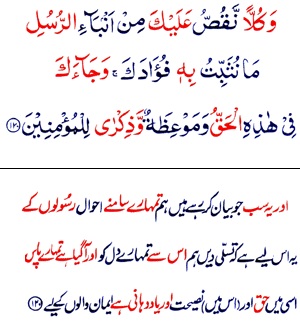 وَكُلًّا نَّقُصُّ عَلَيْكَ مِنْ اَنْۢبَآءِ الرُّسُلِ
مَا نُثَبِّتُ بِهٖ فُؤَادَكَ ۚ وَجَآءَكَ
فِيْ هٰذِهِ الْحَقُّ وَمَوْعِظَةٌ وَّذِكْرٰى لِلْمُؤْمِنِيْنَ ﴿۱۲۰﴾
اور یہ سب جو بیان کر رہے ہیں ہم تمہارے سامنے احوال رسولوں کے
یہ اس لیے ہے کہ تسلی دیں ہم اس سے تمہارے دل کو اور آ گیا ہے تمہارے پاس
اس میں حق اور (اس میں) نصیحت اور یاد دہانی ہے ایمان والوں کیلیے ﴿۱۲۰﴾